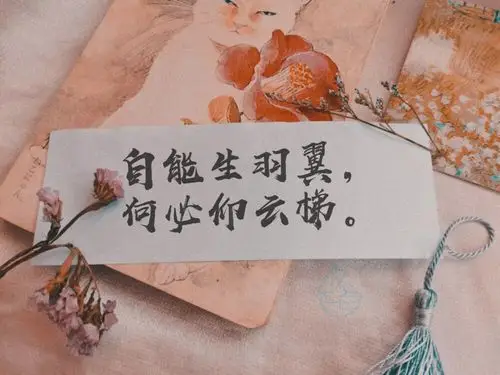 自能生羽翼，
何必仰云梯。